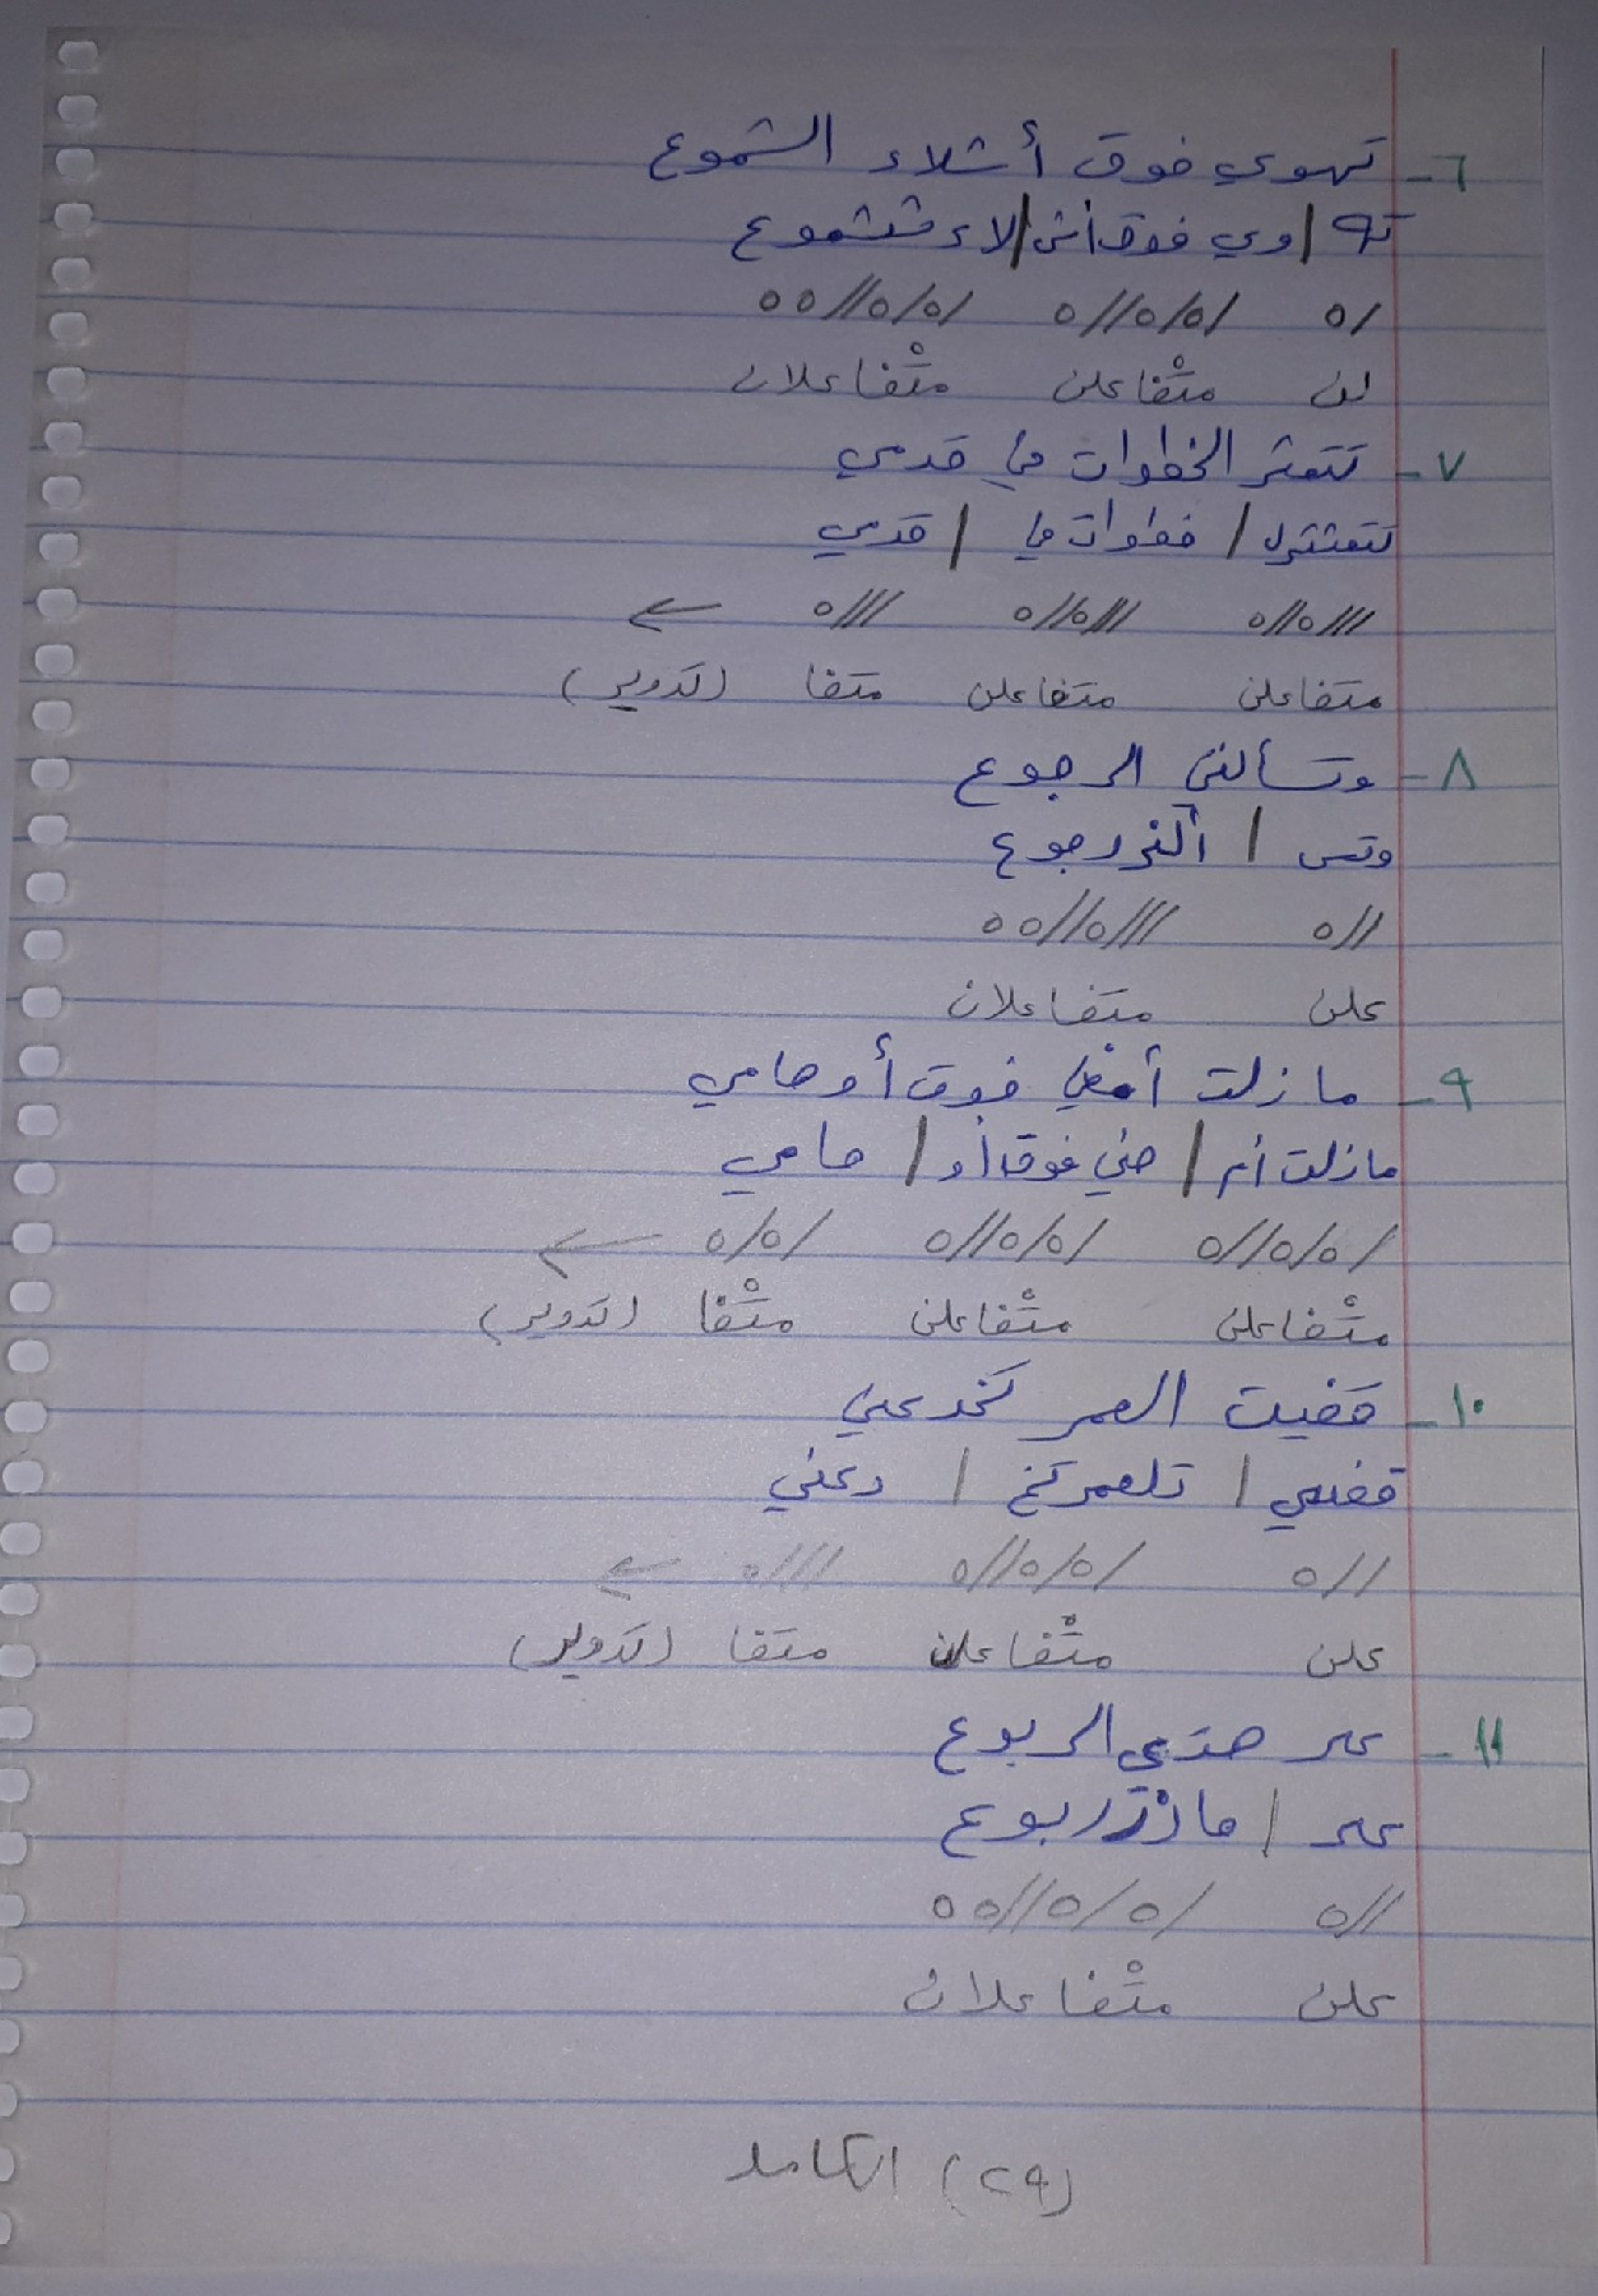 ٦- تهوي فوق أشلاء الشموع
ته / وي فوق أش / لاء ششموع
/ه /ه/ه//ه /ه/ه//ه ه
لن متْفاعلن متْفاعلان
٧- تتعثر الخطوات في قدمي
تتعثثرل / خطوات في / قدمي
///ه//ه ///ه//ه ///ه ←
متفاعلن متفاعلن متفا (تدوير)
٨- وتسألني الرجوع
وتس / ألنررجوع
//ه ///ه//ه ه
علن متفاعلان
٩- ما زلت أمضي فوق أوهامي
مازلت أم / ضي فوق أو / هامي
/ه/ه//ه /ه/ه//ه /ه/ه ←
متْفاعلن متْفاعلن متْفا (تدوير)
١٠- قضيت العمر تخدعني
قضي / تلعمر تخ / دعني
//ه /ه/ه//ه ///ه ←
علن متْفاعلن متفا (تدوير)
١١- على هذي الربوع
على / هاذرربوع
//ه /ه/ه//ه ه
علن متْفاعلان
(٢٩) الكامل